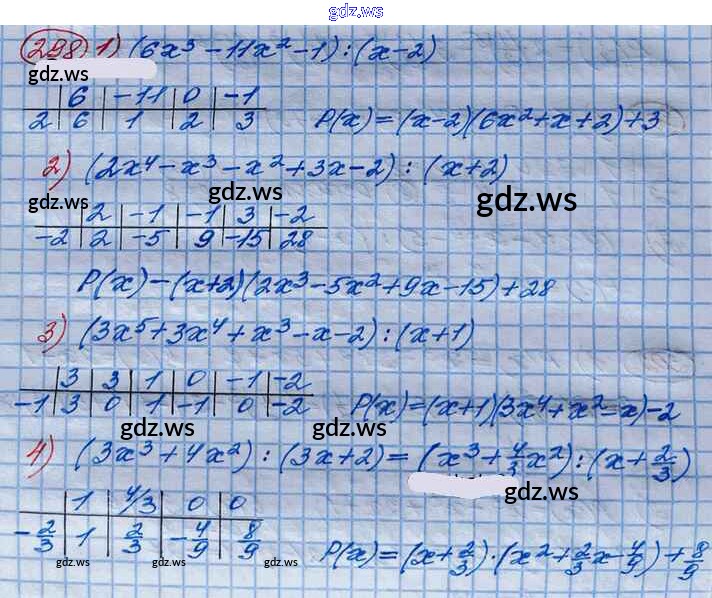 gdz.ws
298 1) (6x³ - 11x² - 1) : (x - 2)
gdz.ws
| 6 | -11 | 0 | -1
2 | 6 | 1 | 2 | 3
P(x) = (x-2)(6x² + x + 2) + 3
2) (2x⁴ - x³ - x² + 3x - 2) : (x + 2)
gdz.ws gdz.ws gdz.ws
| 2 | -1 | -1 | 3 | -2
-2 | 2 | -5 | 9 | -15 | 28
P(x) - (x+2)(2x³ - 5x² + 9x - 15) + 28
3) (3x⁵ + 3x⁴ + x³ - x - 2) : (x + 1)
| 3 | 3 | 1 | 0 | -1 | -2
-1 | 3 | 0 | 1 | -1 | 0 | -2
P(x) = (x+1)(3x⁴ + x² = x) - 2
gdz.ws gdz.ws
4) (3x³ + 4x²) : (3x + 2) = (x³ + 4/3 x²) : (x + 2/3)
gdz.ws
| 1 | 4/3 | 0 | 0
-2/3 | 1 | 2/3 | -4/9 | 8/9
P(x) = (x + 2/3) · (x² + 2/3 x - 4/9) + 8/9
gdz.ws gdz.ws gdz.ws gdz.ws gdz.ws